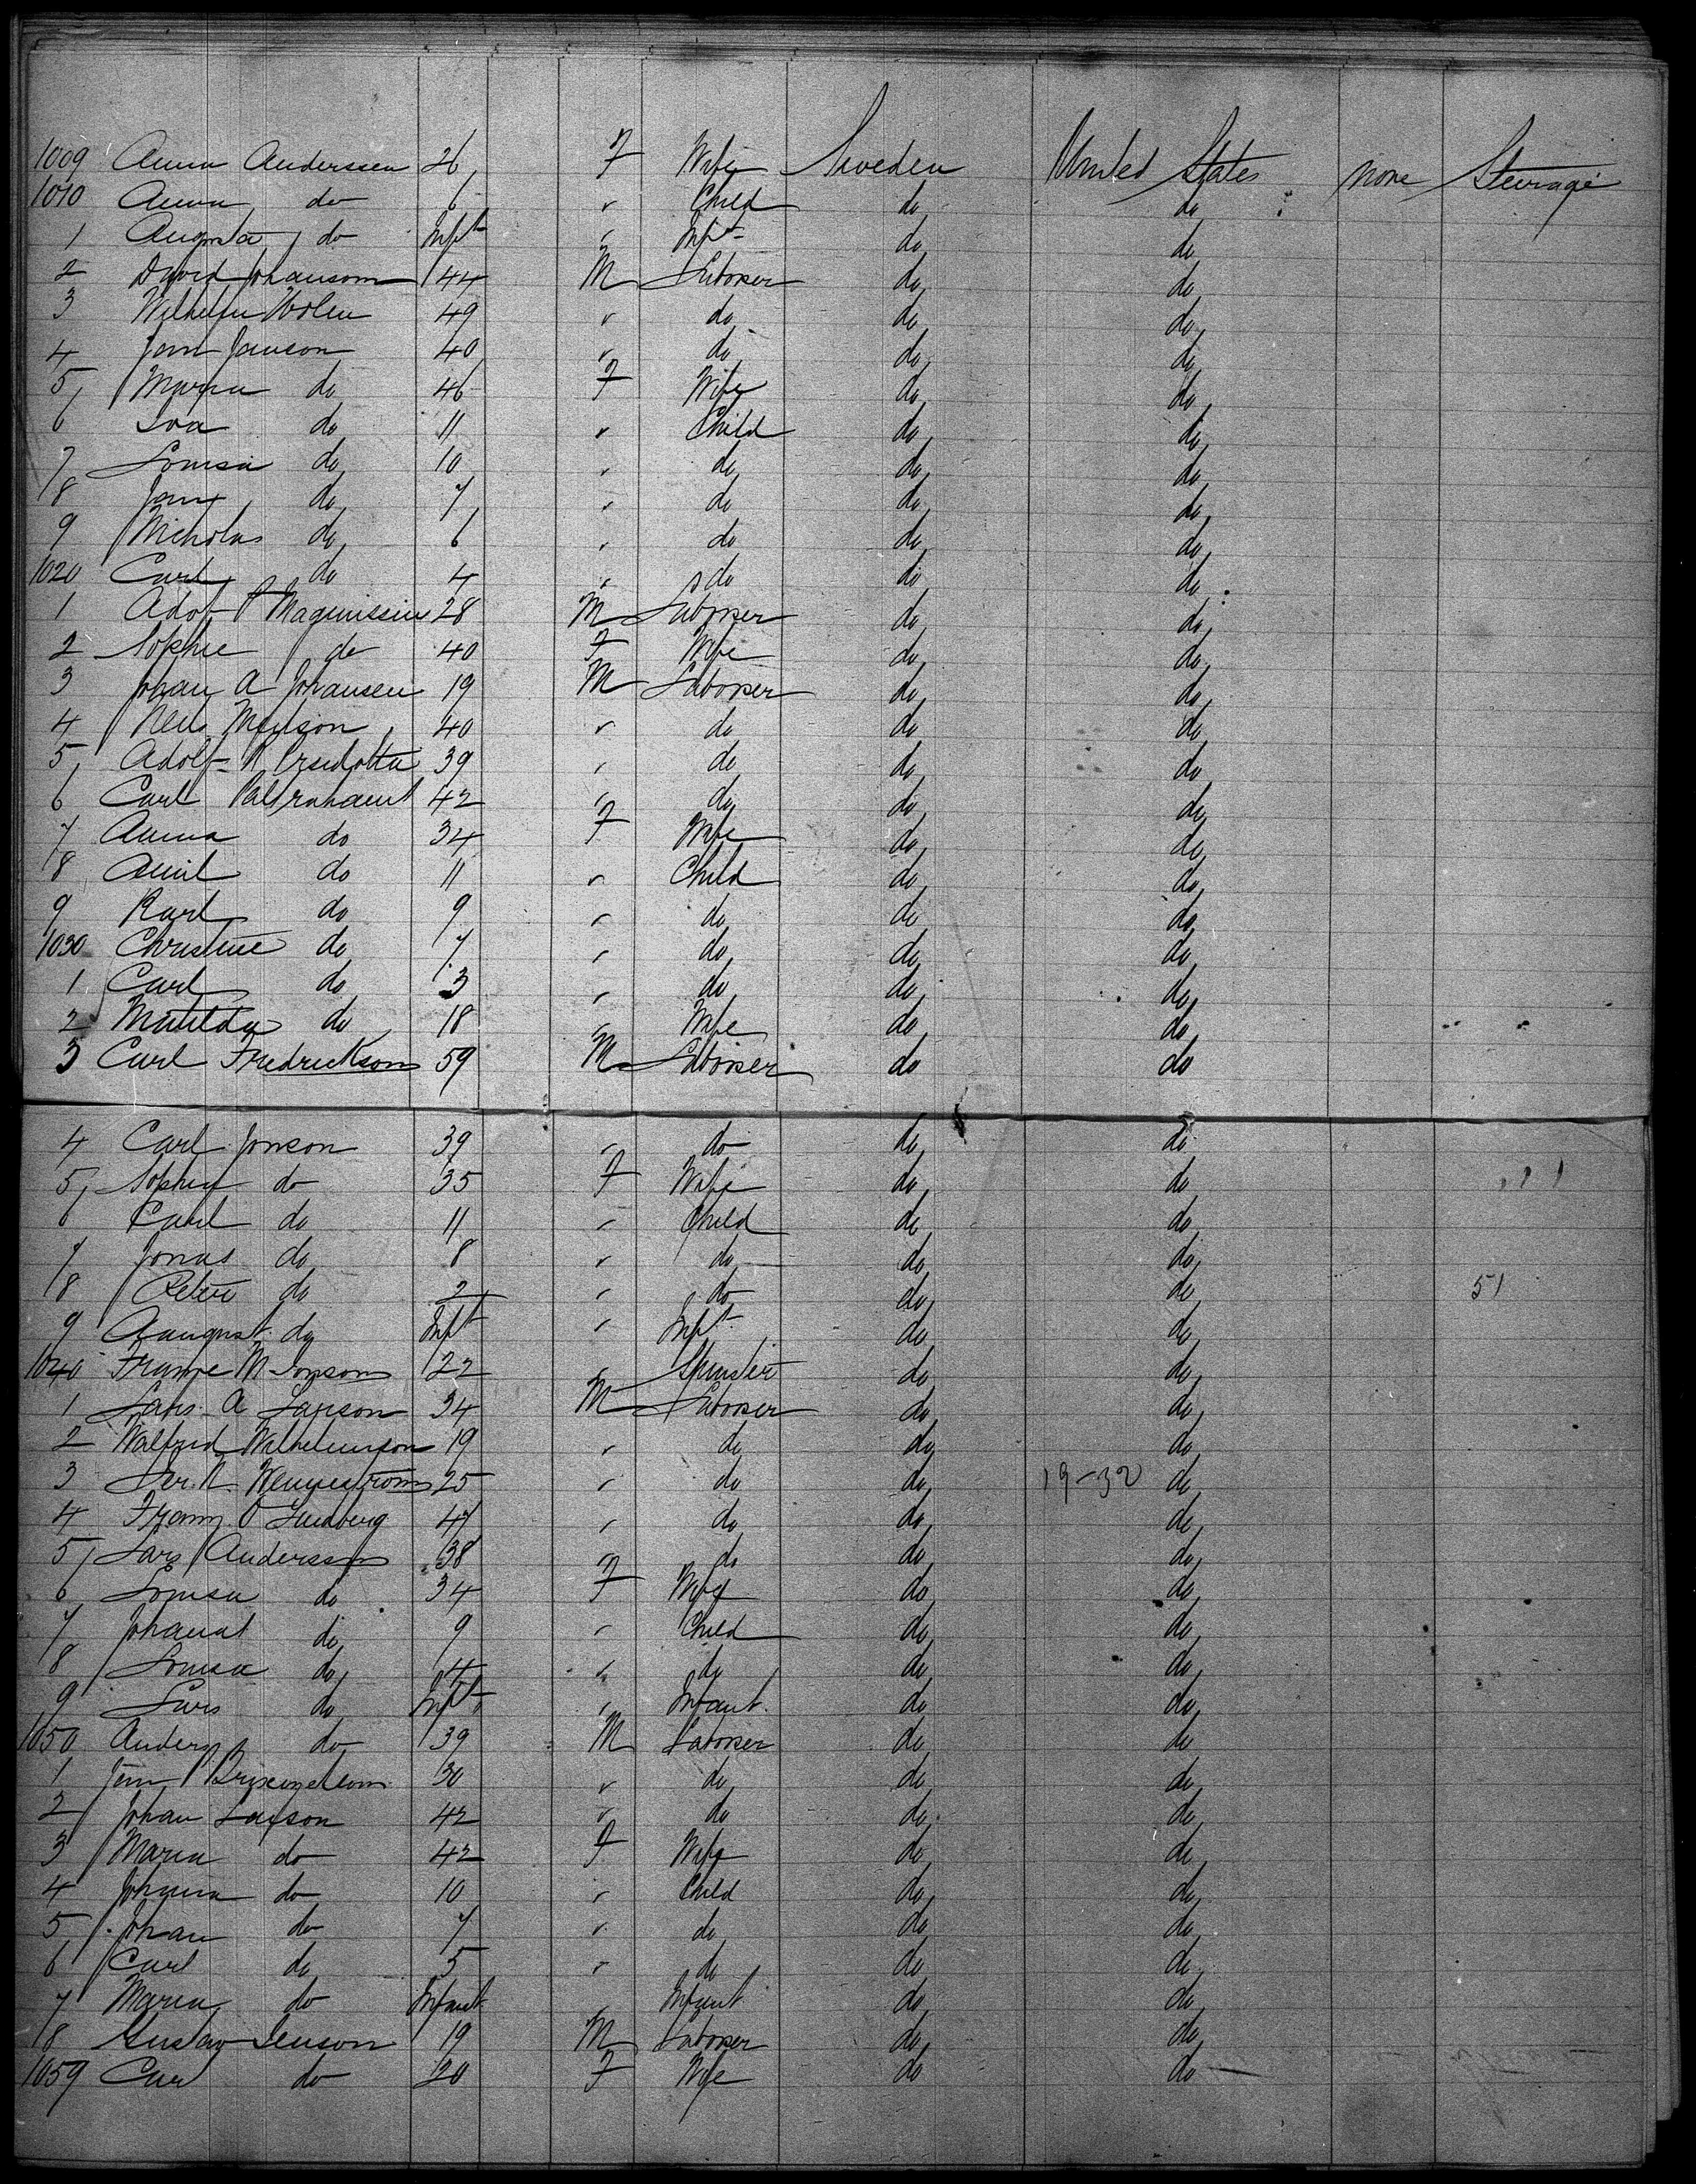 1009 Anna Anderssen 26 F Wife Sweden United States none Steerage
1010 Anna do 6 " Child do do
1 Augusta do Inft " Inft do do
2 David Johansom 44 M Laborer do do
3 Wilhelm 49 " do do do
4 Jan Janson 40 " do do do
5 Maria do 46 F Wife do do
6 do 11 " Child do do
7 Lomsa do 10 " do do do
8 do 7 " do do do
9 Nicholas do 6 " do do do
1020 Carl do 4 " do do do
1 Adof P 28 M Laborer do do
2 Sophie do 40 F Wife do do
3 Johan A Johansen 19 M Laborer do do
4 40 " do do do
5 Adolf 39 " do do do
6 Carl 42 " do do do
7 Anna do 34 F Wife do do
8 Amil do 11 " Child do do
9 Karl do 9 " do do do
1030 Christine do 7 " do do do
1 Carl do 3 " do do do
2 Matilda do 18 " Wife do do
3 Carl Fredrickson 59 M Laborer do do
4 Carl Jonson 39 " do do do
5 Sophia do 35 F Wife do do
6 Carl do 11 " Child do do
7 Jonas do 8 " do do do
8 Peter do 2 " do do do 51
9 Aaugust do Inft " Inft do do
1040 M Jonson 22 " Spinster do do
1 Lars A Larson 34 M Laborer do do
2 Walfrid 19 " do do do
3 25 " do do 19-32 do
4 O Lundberg 47 " do do do
5 Lars Andersson 38 " do do do
6 Lomsa do 34 F Wife do do
7 do 9 " Child do do
8 Lomsa do 4 " do do do
9 Lars do Inft " Infant do do
1050 Anders do 39 M Laborer do do
1 30 " do do do
2 Johan Larson 42 " do do do
3 Maria do 42 F Wife do do
4 Johana do 10 " Child do do
5 Johan do 7 " do do do
6 Carl do 5 " do do do
7 Maria do Infant " Infant do do
8 Gustav Jenson 19 M Laborer do do
1059 Car do 20 F Wife do do